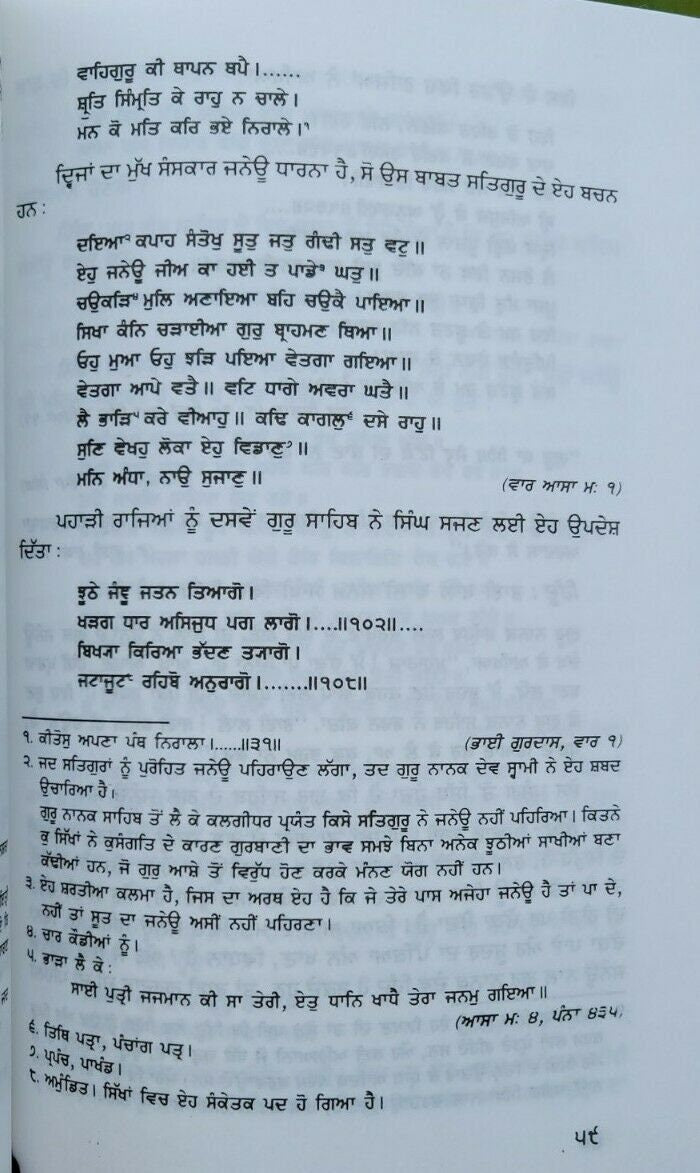 ਵਾਹਿਗੁਰੂ ਕੀ ਥਾਪਨ ਥਪੈ।......
ਸ਼੍ਰੁਤਿ ਸਿੰਮ੍ਰਤਿ ਕੇ ਰਾਹੁ ਨ ਚਾਲੇ।
ਮਨ ਕੋ ਮਤਿ ਕਰਿ ਭਏ ਨਿਰਾਲੇ।੧
ਦ੍ਵਿਜਾਂ ਦਾ ਮੁੱਖ ਸੰਸਕਾਰ ਜਨੇਊ ਧਾਰਨਾ ਹੈ, ਸੋ ਉਸ ਬਾਬਤ ਸਤਿਗੁਰੂ ਦੇ ਏਹ ਬਚਨ
ਹਨ :
ਦਇਆ੨ ਕਪਾਹ ਸੰਤੋਖੁ ਸੂਤੁ ਜਤੁ ਗੰਢੀ ਸਤੁ ਵਟੁ॥
ਏਹੁ ਜਨੇਊ ਜੀਅ ਕਾ ਹਈ ਤ ਪਾਡੇ੩ ਘਤੁ॥
ਚਉਕੜਿ੪ ਮੁਲਿ ਅਣਾਇਆ ਬਹਿ ਚਉਕੈ ਪਾਇਆ॥
ਸਿਖਾ ਕੰਨਿ ਚੜਾਈਆ ਗੁਰੁ ਬ੍ਰਾਹਮਣ ਥਿਆ॥
ਓਹੁ ਮੁਆ ਓਹੁ ਝੜਿ ਪਇਆ ਵੇਤਗਾ ਗਇਆ॥
ਵੇਤਗਾ ਆਪੇ ਵਤੈ॥ ਵਟਿ ਧਾਗੇ ਅਵਰਾ ਘਤੈ॥
ਲੈ ਭਾੜਿ੫ ਕਰੇ ਵੀਆਹੁ॥ ਕਢਿ ਕਾਗਲੁ੬ ਦਸੇ ਰਾਹੁ॥
ਸੁਣਿ ਵੇਖਹੁ ਲੋਕਾ ਏਹੁ ਵਿਡਾਣੁ੭॥
ਮਨਿ ਅੰਧਾ, ਨਾਉ ਸੁਜਾਣੁ॥ (ਵਾਰ ਆਸਾ ਮਃ ੧)
ਪਹਾੜੀ ਰਾਜਿਆਂ ਨੂੰ ਦਸਵੇਂ ਗੁਰੂ ਸਾਹਿਬ ਨੇ ਸਿੰਘ ਸਜਣ ਲਈ ਏਹ ਉਪਦੇਸ਼
ਦਿੱਤਾ :
ਝੂਠੇ ਜੰਞੂ ਜਤਨ ਤਿਆਗੋ।
ਖੜਗ ਧਾਰ ਅਸਿਜੁਧ ਪਗ ਲਾਗੋ।....॥੧੦੨॥....
ਬਿਖ੍ਯਾ ਕਿਰਿਆ ਭੱਦਣ ਤ੍ਯਾਗੋ।
ਜਟਾਜੂਟ੮ ਰਹਿਬੋ ਅਨੁਰਾਗੋ।.......॥੧੦੮॥
੧. ਕੀਤੋਸੁ ਅਪਣਾ ਪੰਥ ਨਿਰਾਲਾ।......॥੩੧॥ (ਭਾਈ ਗੁਰਦਾਸ, ਵਾਰ ੧)
੨. ਜਦ ਸਤਿਗੁਰਾਂ ਨੂੰ ਪੁਰੋਹਿਤ ਜਨੇਊ ਪਹਿਰਾਉਣ ਲੱਗਾ, ਤਦ ਗੁਰੂ ਨਾਨਕ ਦੇਵ ਸ੍ਵਾਮੀ ਨੇ ਏਹ ਸ਼ਬਦ
ਉਚਾਰਿਆ ਹੈ।
ਗੁਰੂ ਨਾਨਕ ਸਾਹਿਬ ਤੋਂ ਲੈ ਕੇ ਕਲਗੀਧਰ ਪ੍ਰਯੰਤ ਕਿਸੇ ਸਤਿਗੁਰੂ ਨੇ ਜਨੇਊ ਨਹੀਂ ਪਹਿਰਿਆ। ਕਿਤਨੇ
ਕੁ ਸਿੱਖਾਂ ਨੇ ਕੁਸੰਗਤਿ ਦੇ ਕਾਰਣ ਗੁਰਬਾਣੀ ਦਾ ਭਾਵ ਸਮਝੇ ਬਿਨਾ ਅਨੇਕ ਝੂਠੀਆਂ ਸਾਖੀਆਂ ਬਣਾ
ਕੱਢੀਆਂ ਹਨ, ਜੋ ਗੁਰੁ ਆਸ਼ੇ ਤੋਂ ਵਿਰੁੱਧ ਹੋਣ ਕਰਕੇ ਮੰਨਣ ਯੋਗ ਨਹੀਂ ਹਨ।
੩. ਏਹ ਸ਼ਰਤੀਆ ਕਲਮਾ ਹੈ, ਜਿਸ ਦਾ ਅਰਥ ਏਹ ਹੈ ਕਿ ਜੇ ਤੇਰੇ ਪਾਸ ਅਜੇਹਾ ਜਨੇਊ ਹੈ ਤਾਂ ਪਾ ਦੇ,
ਨਹੀਂ ਤਾਂ ਸੂਤ ਦਾ ਜਨੇਊ ਅਸੀਂ ਨਹੀਂ ਪਹਿਰਣਾ।
੪. ਚਾਰ ਕੌਡੀਆਂ ਨੂੰ।
੫. ਭਾੜਾ ਲੈ ਕੇ :
ਸਾਈ ਪੁਤ੍ਰੀ ਜਜਮਾਨ ਕੀ ਸਾ ਤੇਰੀ, ਏਤੁ ਧਾਨਿ ਖਾਧੈ ਤੇਰਾ ਜਨਮੁ ਗਇਆ॥
(ਆਸਾ ਮਃ ੪, ਪੰਨਾ ੪੩੫)
੬. ਤਿਥਿ ਪਤ੍ਰਾ, ਪੰਚਾਂਗ ਪਤ੍ਰ।
੭. ਪ੍ਰਪੰਚ, ਪਾਖੰਡ।
੮. ਅਮੁੰਡਿਤ। ਸਿੱਖਾਂ ਵਿਚ ਏਹ ਸੰਕੇਤਕ ਪਦ ਹੋ ਗਿਆ ਹੈ।
੫੯